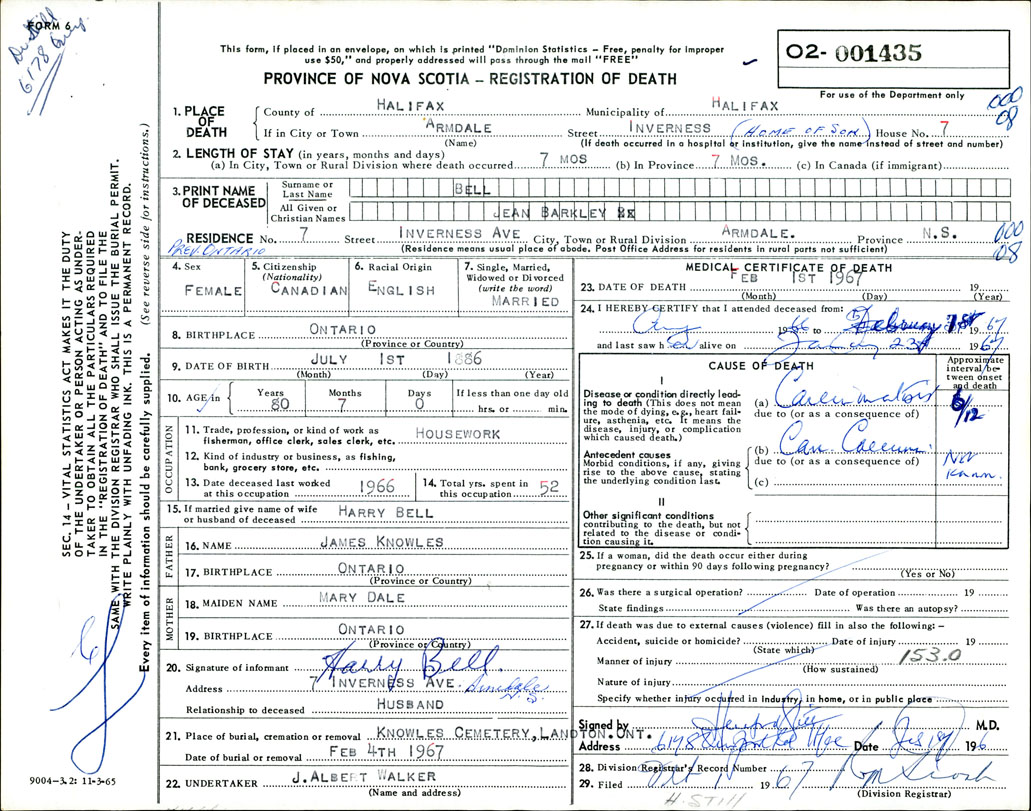 FORM 6
6178
This form, if placed in an envelope, on which is printed "Dominion Statistics – Free, penalty for improper
use $50," and properly addressed will pass through the mail "FREE"
PROVINCE OF NOVA SCOTIA – REGISTRATION OF DEATH
02- 001435
For use of the Department only
000
08
1. PLACE OF DEATH
County of HALIFAX Municipality of HALIFAX
If in City or Town ARMDALE Street INVERNESS (HOME OF SON) House No. 7
(Name) (If death occurred in a hospital or institution, give the name instead of street and number)
2. LENGTH OF STAY (in years, months and days)
(a) In City, Town or Rural Division where death occurred 7 MOS (b) In Province 7 MOS. (c) In Canada (if immigrant)
3. PRINT NAME OF DECEASED
Surname or Last Name BELL
All Given or Christian Names JEAN BARKLEY
RESIDENCE No. 7 Street INVERNESS AVE City, Town or Rural Division ARMDALE. Province N.S.
PREV. ONTARIO (Residence means usual place of abode. Post Office Address for residents in rural parts not sufficient)
000
08
4. Sex FEMALE
5. Citizenship (Nationality) CANADIAN
6. Racial Origin ENGLISH
7. Single, Married, Widowed or Divorced (write the word) MARRIED
8. BIRTHPLACE ONTARIO
(Province or Country)
9. DATE OF BIRTH JULY 1ST 1886
(Month) (Day) (Year)
10. AGE in Years 80 Months 7 Days 0 If less than one day old hrs. or min.
OCCUPATION
11. Trade, profession, or kind of work as fisherman, office clerk, sales clerk, etc. HOUSEWORK
12. Kind of industry or business, as fishing, bank, grocery store, etc.
13. Date deceased last worked at this occupation 1966
14. Total yrs. spent in this occupation 52
15. If married give name of wife or husband of deceased HARRY BELL
FATHER
16. NAME JAMES KNOWLES
17. BIRTHPLACE ONTARIO
(Province or Country)
MOTHER
18. MAIDEN NAME MARY DALE
19. BIRTHPLACE ONTARIO
(Province or Country)
20. Signature of informant Harry Bell.
Address 7 INVERNESS AVE. Armdale N.S.
Relationship to deceased HUSBAND
21. Place of burial, cremation or removal KNOWLES CEMETERY, LANDTON. ONT.
Date of burial or removal FEB 4TH 1967
22. UNDERTAKER J. ALBERT WALKER
(Name and address)
MEDICAL CERTIFICATE OF DEATH
23. DATE OF DEATH FEB 1ST 1967 19
(Month) (Day) (Year)
24. I HEREBY CERTIFY that I attended deceased from:
Aug 1966 to February 1st 1967
and last saw her alive on 23 1967
CAUSE OF DEATH
Approximate interval between onset and death
I
Disease or condition directly leading to death (This does not mean the mode of dying, e.g., heart failure, asthenia, etc. It means the disease, injury, or complication which caused death.)
(a) Carcinomatosis 6/12
due to (or as a consequence of)
Antecedent causes
Morbid conditions, if any, giving rise to the above cause, stating the underlying condition last.
(b) Car. Caecum. Not Known.
due to (or as a consequence of)
(c)
II
Other significant conditions
contributing to the death, but not related to the disease or condition causing it.
25. If a woman, did the death occur either during pregnancy or within 90 days following pregnancy?
(Yes or No)
26. Was there a surgical operation? Date of operation 19
State findings Was there an autopsy?
27. If death was due to external causes (violence) fill in also the following: –
Accident, suicide or homicide? Date of injury 19
(State which)
Manner of injury 153.0
(How sustained)
Nature of injury
Specify whether injury occurred in Industry, in home, or in public place
Signed by M.D.
Address 6178 Date 196
28. Division Registrar's Record Number
29. Filed 1967
(Division Registrar)
H. STILL
SEC. 14 – VITAL STATISTICS ACT MAKES IT THE DUTY
OF THE UNDERTAKER OR PERSON ACTING AS UNDER-
TAKER TO OBTAIN ALL THE PARTICULARS REQUIRED
IN THE "REGISTRATION OF DEATH" AND TO FILE THE
SAME WITH THE DIVISION REGISTRAR WHO SHALL ISSUE THE BURIAL PERMIT.
WRITE PLAINLY WITH UNFADING INK. THIS IS A PERMANENT RECORD.
Every item of information should be carefully supplied. (See reverse side for instructions.)
9004–3.2: 11-3-65